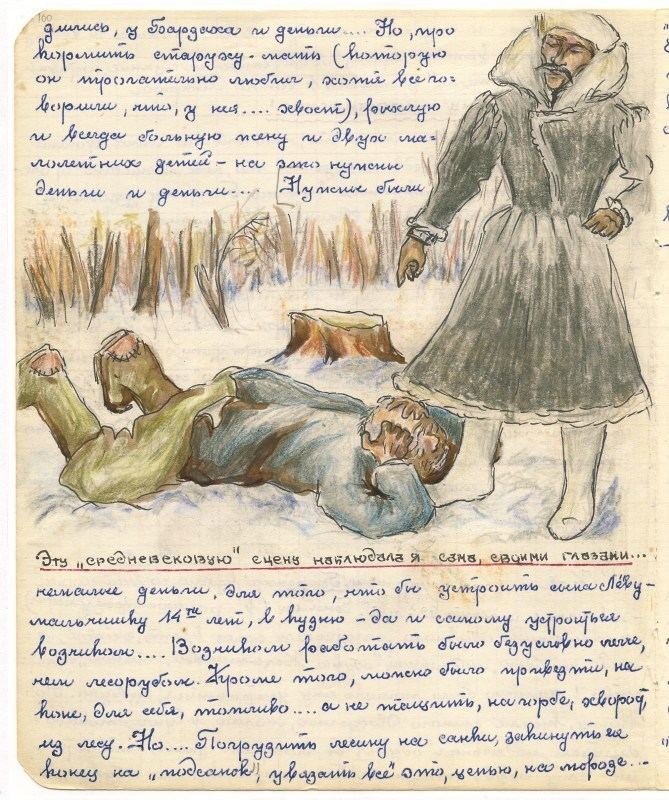 160
дились, у Бардаха и деньги.... Но, про
кормить старуху-мать (которую
он трогательно любил, хотя все го=
ворили, что, у нея.... хвост), рыхлую
и всегда больную жену и двух ма=
лолетних детей - на это нужны
деньги и деньги... Нужны были
Эту „средневековую" сцену наблюдала я сама, своими глазами...
немалые деньги, для того, что бы устроить сына Лёву -
мальчишку 14ти лет, в кузню - да и самому устроиться
возчиком.... Возчиком работать было безусловно легче,
чем лесорубом. Кроме того, можно было привезти, на
коне, для себя, топливо.... а не тащить, на горбе, хворост,
из лесу. Но.... Погрузить лесину на санки, закинуть ея
конец на „подсанок", увязать всё это, цепью, на морозе...